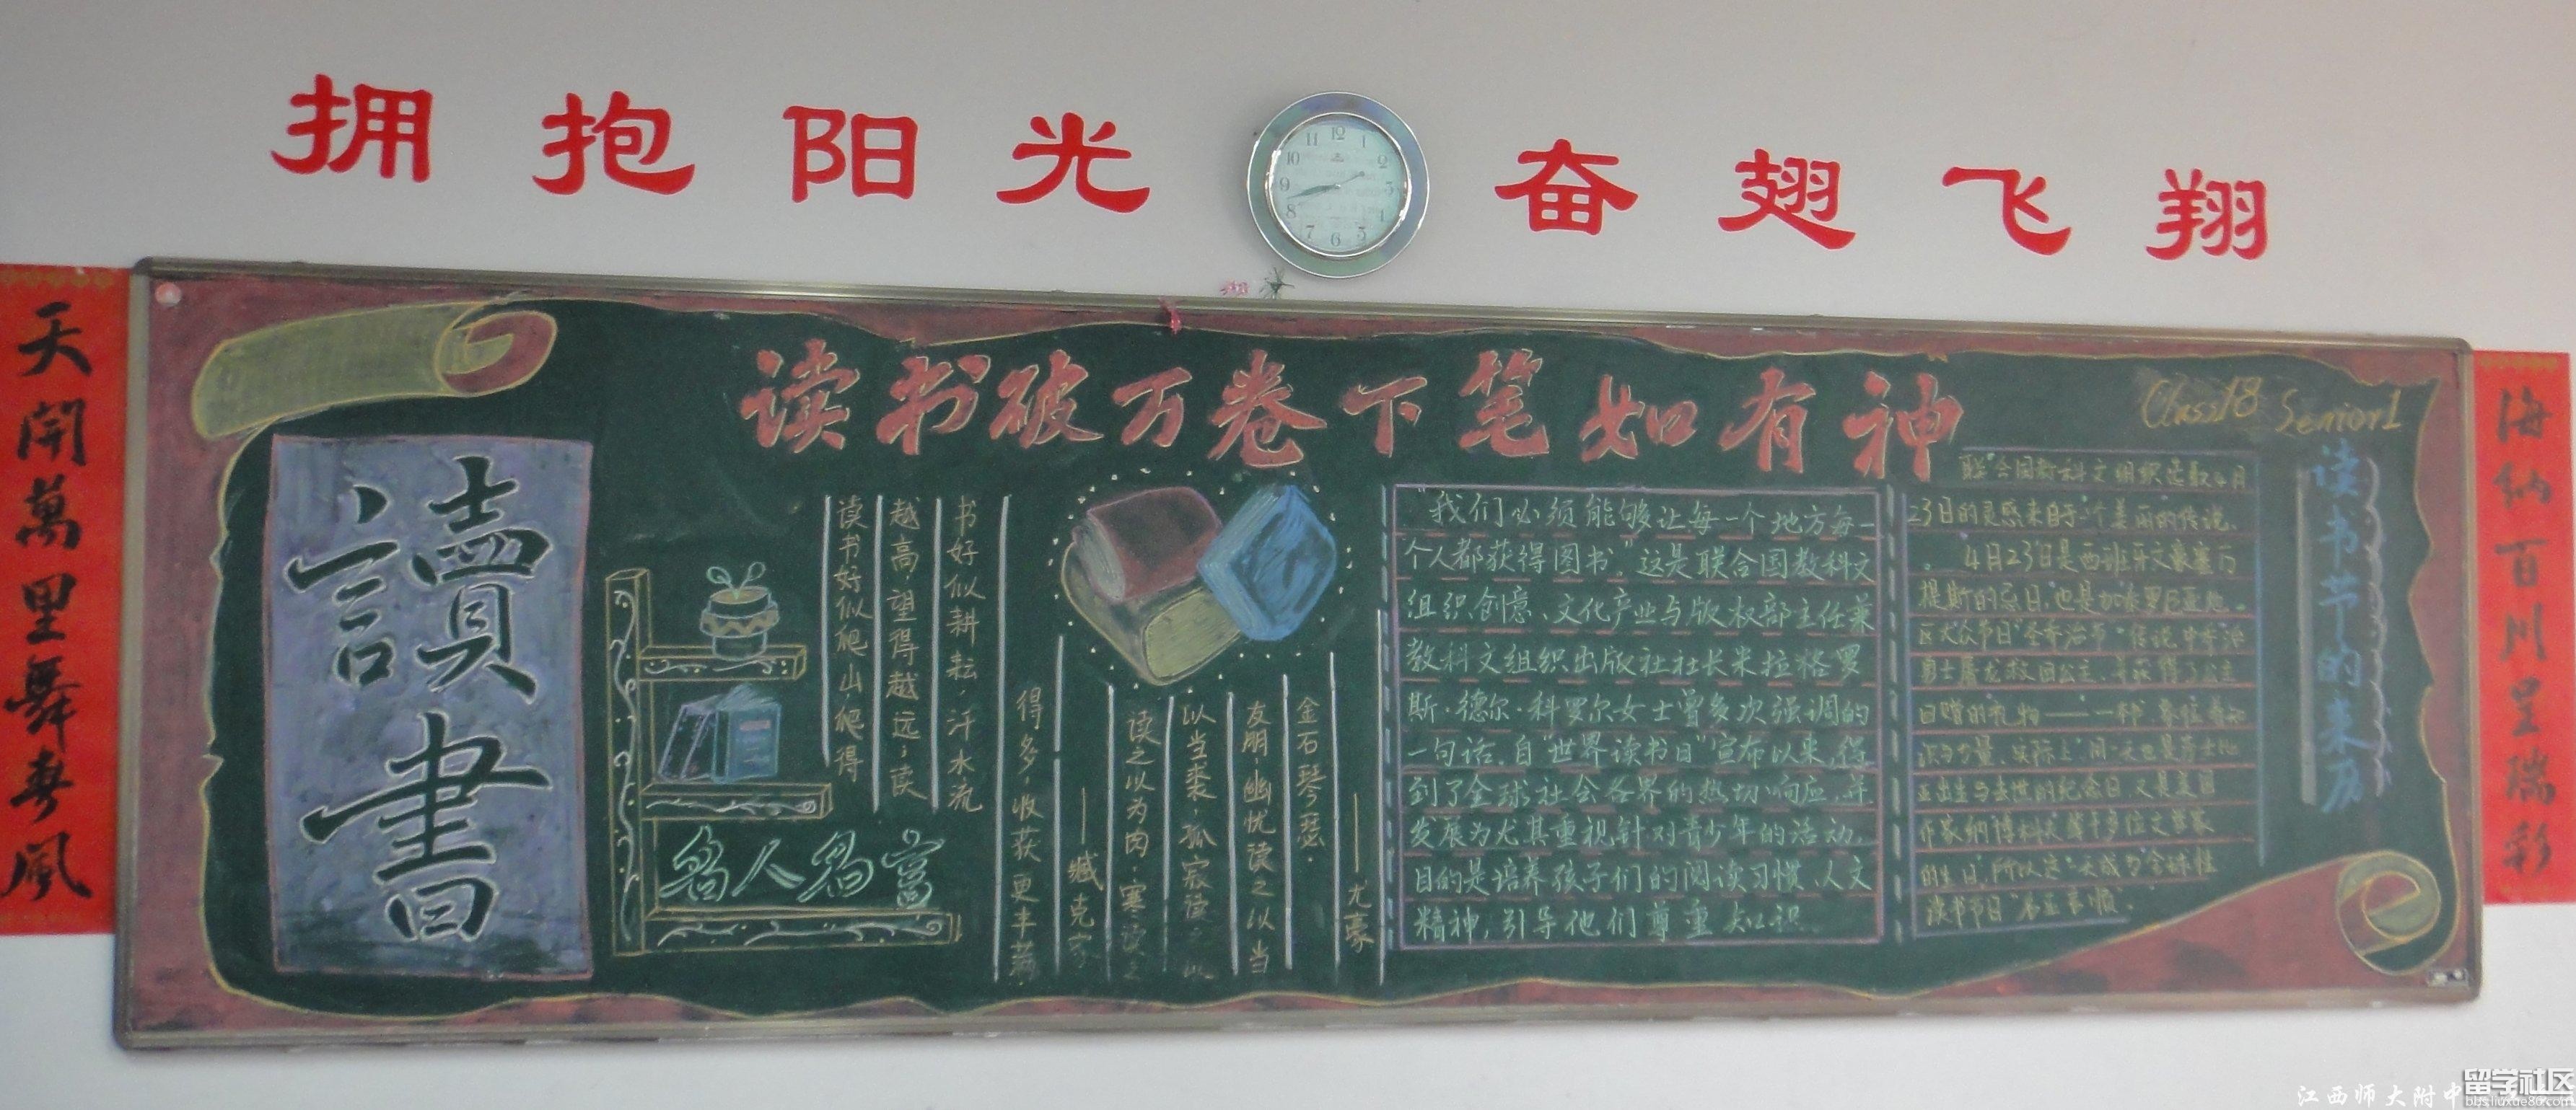 拥抱阳光 奋翅飞翔
天開萬里舞春風
读书破万卷下笔如有神
Class18 Senior1
讀書
名人名言
读书好似爬山爬得
越高，望得越远；读
书好似耕耘，汗水流
得多，收获更丰满
——臧克家
读之以为肉，寒读之
以当裘，孤寂读之以
友朋，幽忧读之以当
金石琴瑟。
——尤袤
"我们必须能够让每一个地方每一
个人都获得图书。"这是联合国教科文
组织创意、文化产业与版权部主任兼
教科文组织出版社社长米拉格罗
斯·德尔·科罗尔女士曾多次强调的
一句话。自"世界读书日"宣布以来，得
到了全球社会各界的热切响应，并
发展为尤其重视针对青少年的活动。
目的是培养孩子们的阅读习惯、人文
精神，引导他们尊重知识
读书节的来历
联合国教科文组织选取4月
23日的灵感来自于一个美丽的传说。
4月23日是西班牙文豪塞万
提斯的忌日，也是加泰罗尼亚地
区大众节日"圣乔治节"。传说中乔治
勇士屠龙救回公主，并获得了公主
回赠的礼物——一本书，象征着知
识与力量。实际上，同一天也是莎士比
亚出生与去世的纪念日，又是美国
作家纳博科夫等十多位文学家
的生日，所以这一天成为全球性
读书节日"名正言顺"。
海納百川呈瑞彩
江西师大附中
留学社区
bbs.liuxue86.com